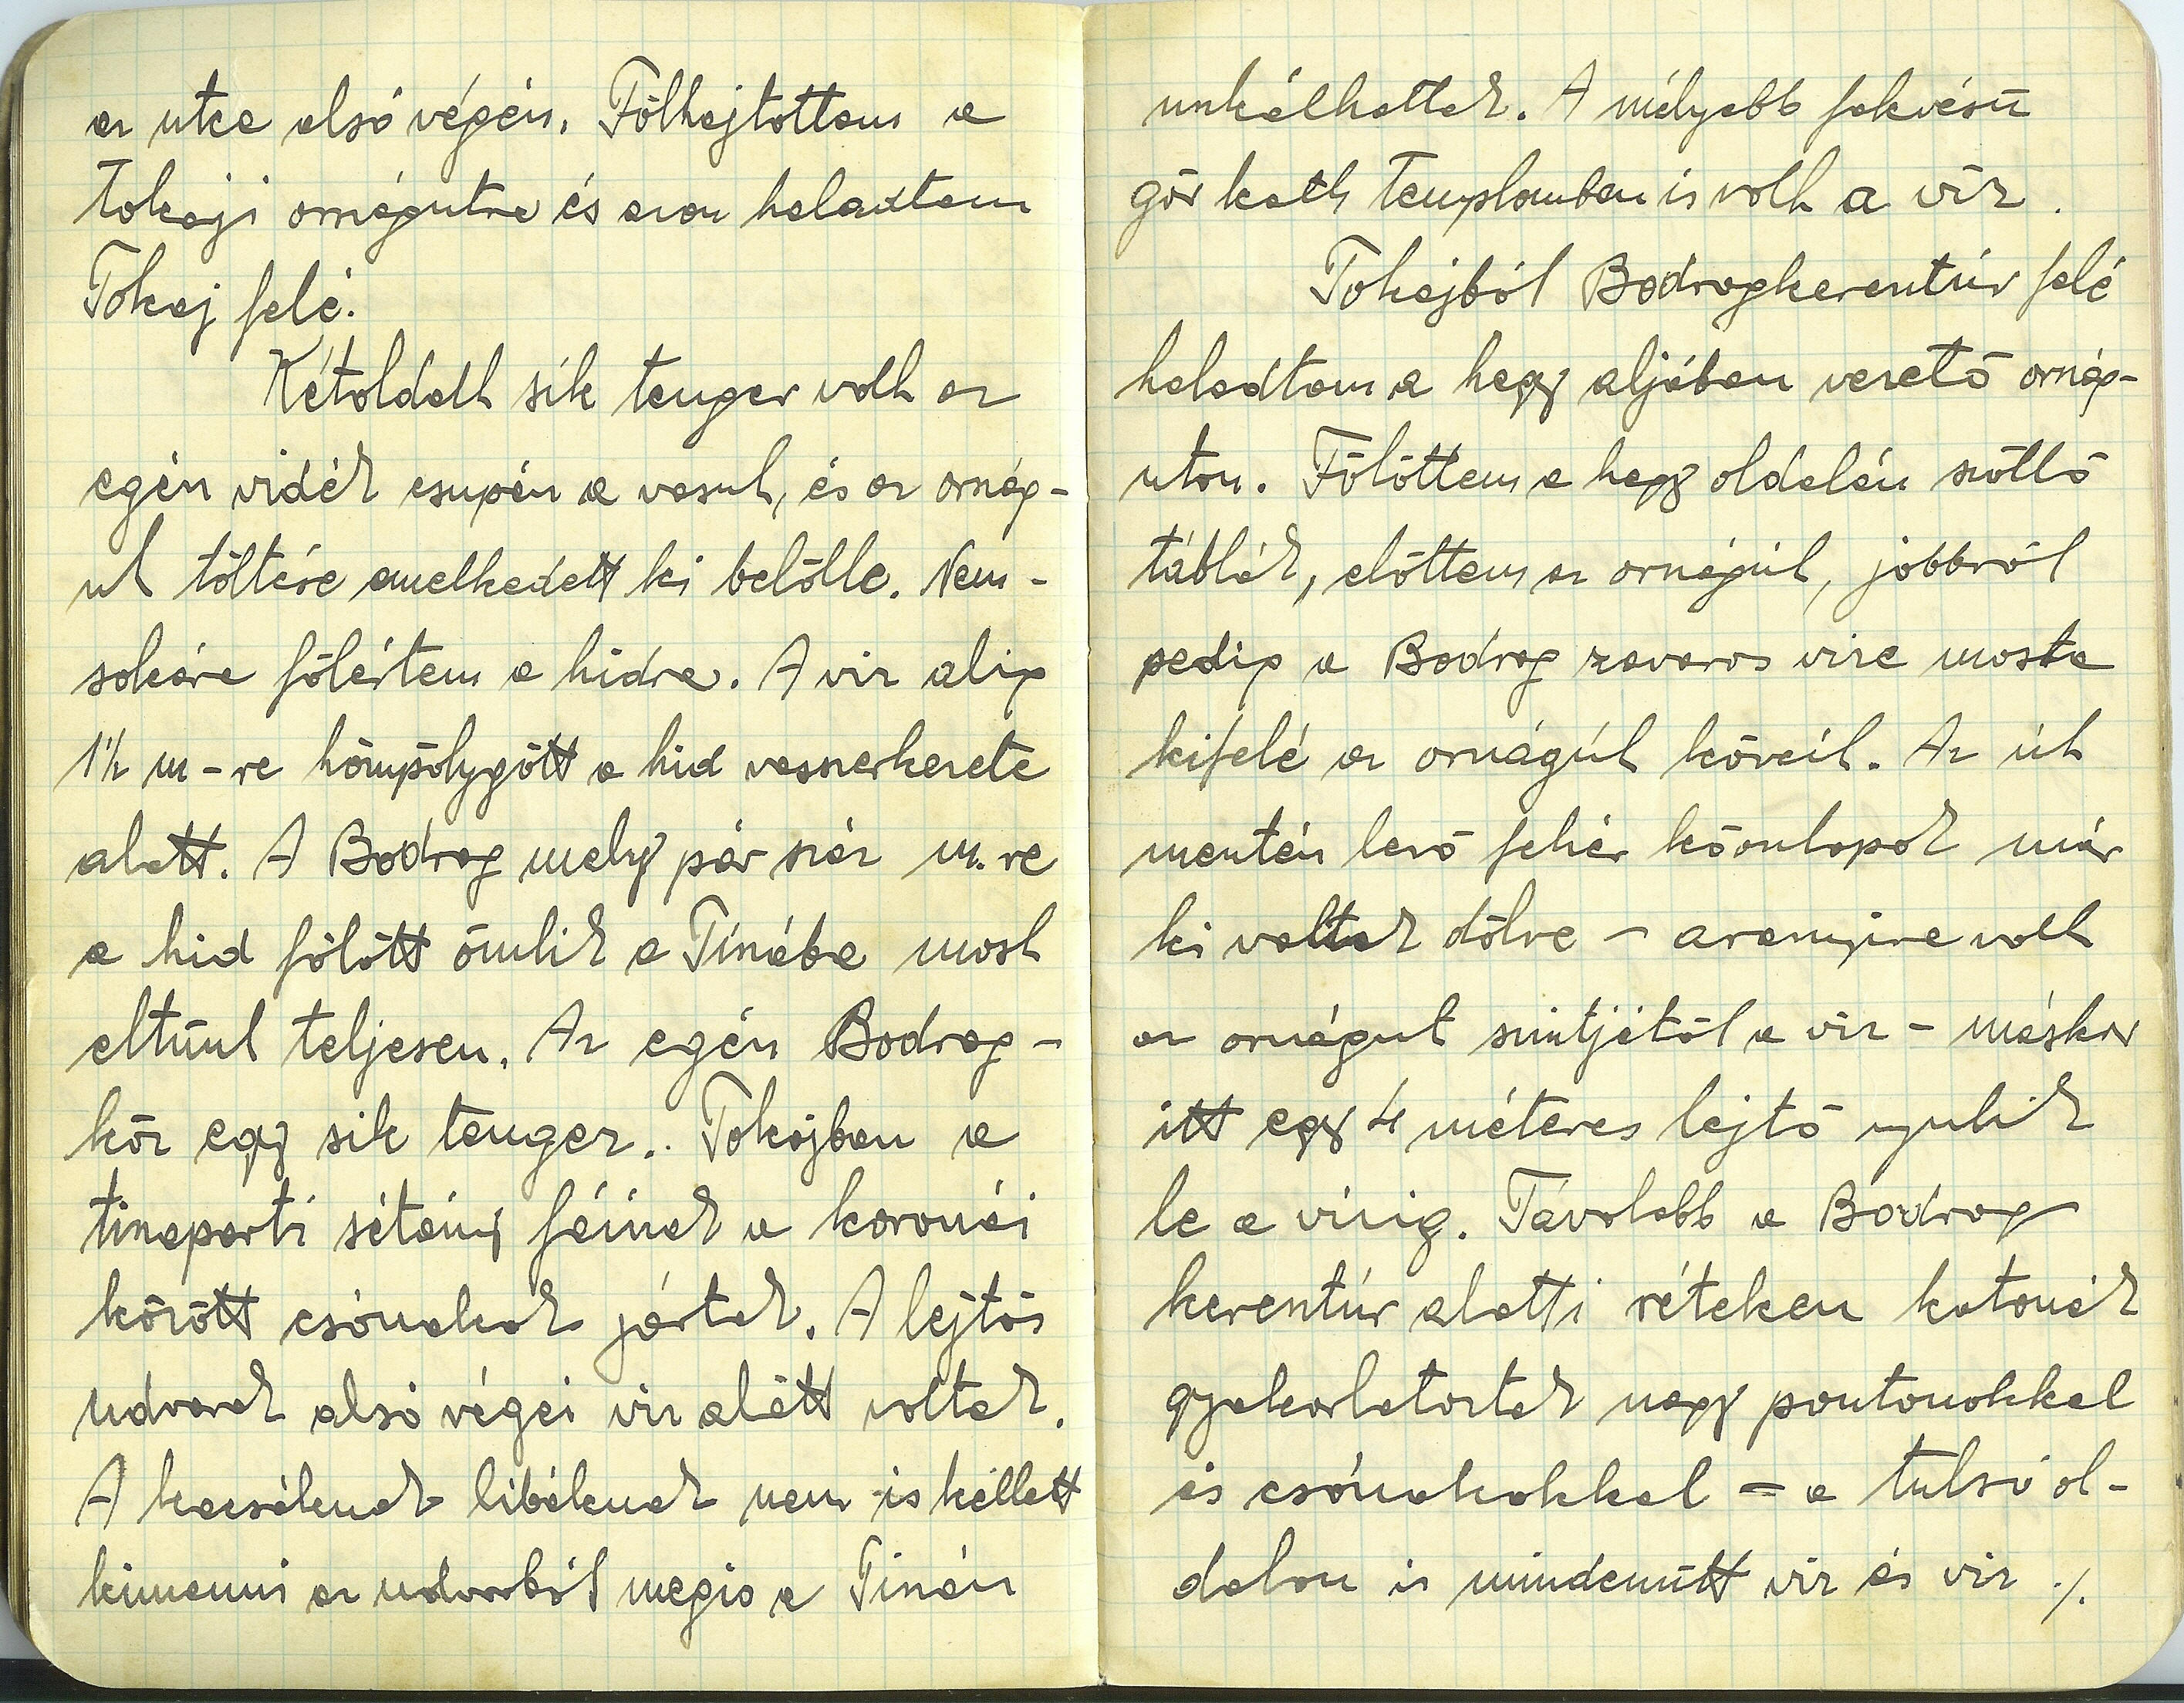 az utca alsó végén. Fölhajtottam a
Tokaji országutra és azon haladtam
Tokaj felé.
Kétoldalt sík tenger volt az
egész vidék csupán a vasut, és az ország-
ut töltése emelkedett ki belőlle. Nem-
sokára fölértem a hidra. A viz alig
1½ m-re hömpölygött a hid vasszerkezete
alatt. A Bodrog mely pár száz m.re
a hid fölött ömlik a Tiszába most
eltünt teljesen. Az egész Bodrog-
köz egy sik tenger.. Tokajban a
tiszaparti sétány fáinak a koronái
között csónakok jártak. A lejtős
udvarok alsó végei viz alatt voltak.
A kacsáknak libáknak nem is kellett
kimenni az udvarból mégis a Tiszán
uszkálhattak. A mélyebb fekvésü
gör kath templomban is volt a víz.
Tokajból Bodrogkeresztúr felé
haladtam a hegy aljában vezető ország-
uton. Fölöttem a hegy oldalán szőllő
táblák, előttem az országút, jobbról
pedig a Bodrog zavaros vize mosta
kifelé az országút köveit. Az út
mentén levő fehér kőoszlopok már
ki voltak dőlve – aranyira volt
az országut szintjétől a víz – máskor
itt egy 4 méteres lejtő nyulik
le a vizig. Távolabb a Bodrog
keresztúr alatti réteken katonák
gyakorlatoztak nagy pontonokkal
és csónakokkal – a tulsó ol-
dalon is mindenütt viz és viz ./.